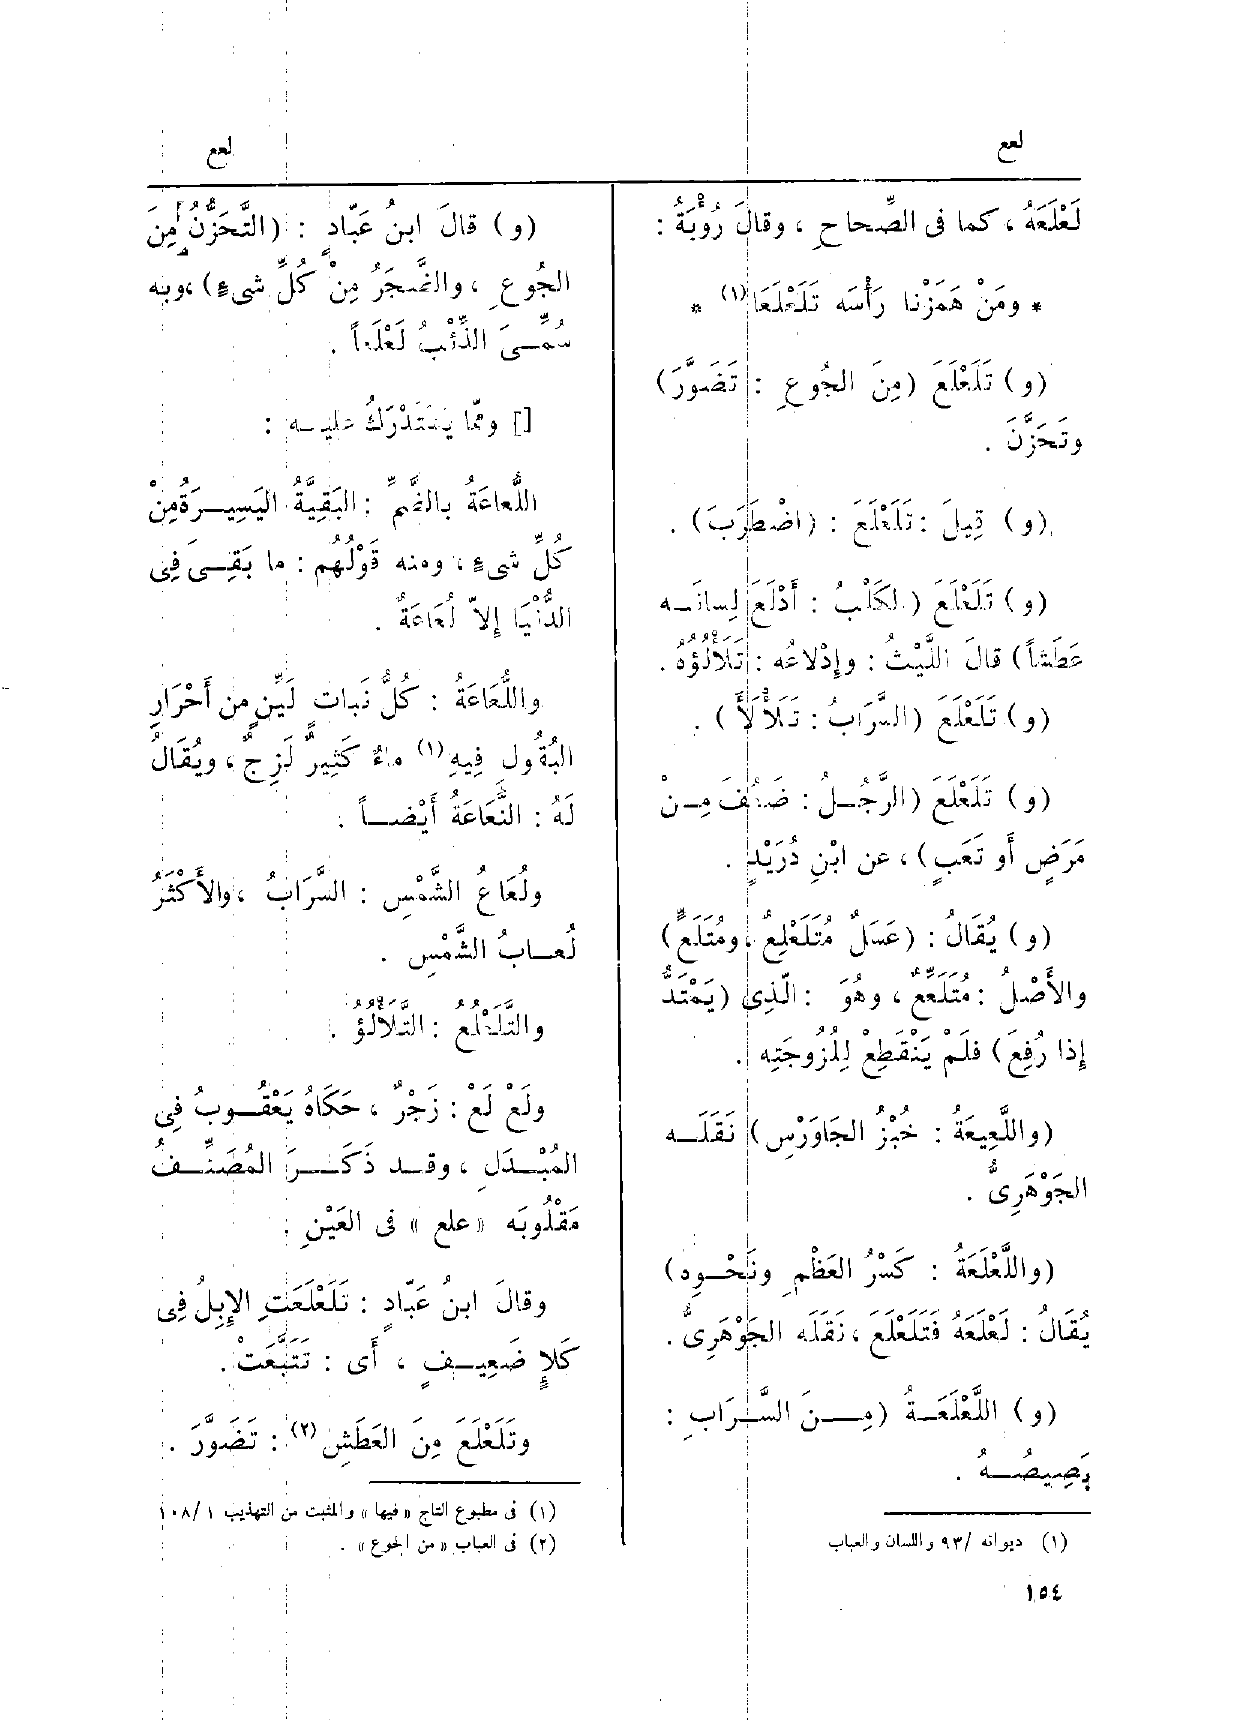 لعع
لعع
لَعْلَعَهُ ، كما فى الصِّحاحِ ، وقالَ رُؤْبَةُ :
* ومَنْ هَمَزْنا رَأْسَه تَلَعْلَعَا(١) *
(و) تَلَعْلَعَ (مِنَ الجُوعِ : تَضَوَّرَ)
وتَحَزَّنَ .
(و) قِيلَ : تَلَعْلَعَ : (اضْطَرَبَ) .
(و) تَلَعْلَعَ (الكَلْبُ : أَدْلَعَ لِسانَــه
عَطَشاً) قالَ اللَّيْثُ : وإِدْلاعُه : تَلَأْلُؤُهُ .
(و) تَلَعْلَعَ (السَّرَابُ : تَلَأْلَأَ) .
(و) تَلَعْلَعَ (الرَّجُـلُ : ضَعُفَ مِـنْ
مَرَضٍ أَو تَعَبٍ) ، عن ابْنِ دُرَيْدٍ .
(و) يُقَالُ : (عَسَلٌ مُتَلَعْلِعٌ ، ومُتَلَعٍّ)
والأَصْلُ : مُتَلَعِّعٌ ، وهُوَ : الَّذِى (يَمْتَدُّ
إِذا رُفِعَ) فلَمْ يَنْقَطِعْ لِلُزُوجَتِه .
(واللَّعِيعَةُ : خُبْزُ الجَاوَرْسِ) نَقَلَــه
الجَوْهَرِىُّ .
(واللَّعْلَعَةُ : كَسْرُ العَظْمِ ونَحْـوِه)
يُقَالُ : لَعْلَعَهُ فتَلَعْلَعَ ، نَقَلَه الجَوْهَرِىُّ .
(و) اللَّعْلَعَــةُ (مِــنَ السَّـرَابِ :
بَصِيصُــهُ .
(١) ديوانه /٩٣ واللسان والعباب
(و) قالَ ابنُ عَبّادٍ : (التَّحَزُّنُ مِنَ
الجُوعِ ، والضَّجَرُ مِنْ كُلِّ شىءٍ) ، وبِه
سُمِّـىَ الذِّئْبُ لَعْلَعاً .
[] وممّا يُسْتَدْرَكُ عليــه :
اللُّعاعَةُ بالضَّمِّ : البَقِيَّةُ اليَسِيـرَةُ مِنْ
كُلِّ شىءٍ ، ومنه قَوْلُهُم : ما بَقِـىَ فِى
الدُّنْيَا إِلاّ لُعَاعَةٌ .
واللُّعَاعَةُ : كُلُّ نَباتٍ لَيِّنٍ من أَحْرَارِ
البُقُولِ فِيهِ(١) ماءٌ كَثِيرٌ لَزِجٌ ، ويُقَالُ
لَهُ : النُّعَاعَةُ أَيْضـاً .
ولُعَاعُ الشَّمْسِ : السَّرَابُ ، والأَكْثَرُ
لُعـابُ الشَّمْسِ .
والتَّلَعْلُعُ : التَّلَأْلُؤُ .
ولَعْ لَعْ : زَجْرٌ ، حَكَاهُ يَعْقُــوبُ فِى
المُبْــدَلِ ، وقــد ذَكَــرَ المُصَنِّــفُ
مَقْلُوبَه «علع» فى العَيْنِ .
وقالَ ابنُ عَبّادٍ : تَلَعْلَعَتِ الإِبِلُ فِى
كَلإٍ ضَعِيــفٍ ، أَى : تَتَبَّعَتْ .
وتَلَعْلَعَ مِنَ العَطَشِ(٢) : تَضَوَّرَ .
(١) فى مطبوع التاج «فيها» والمثبت من التهذيب ١٠٨/١
(٢) فى العباب «من الجوع» .
١٥٤